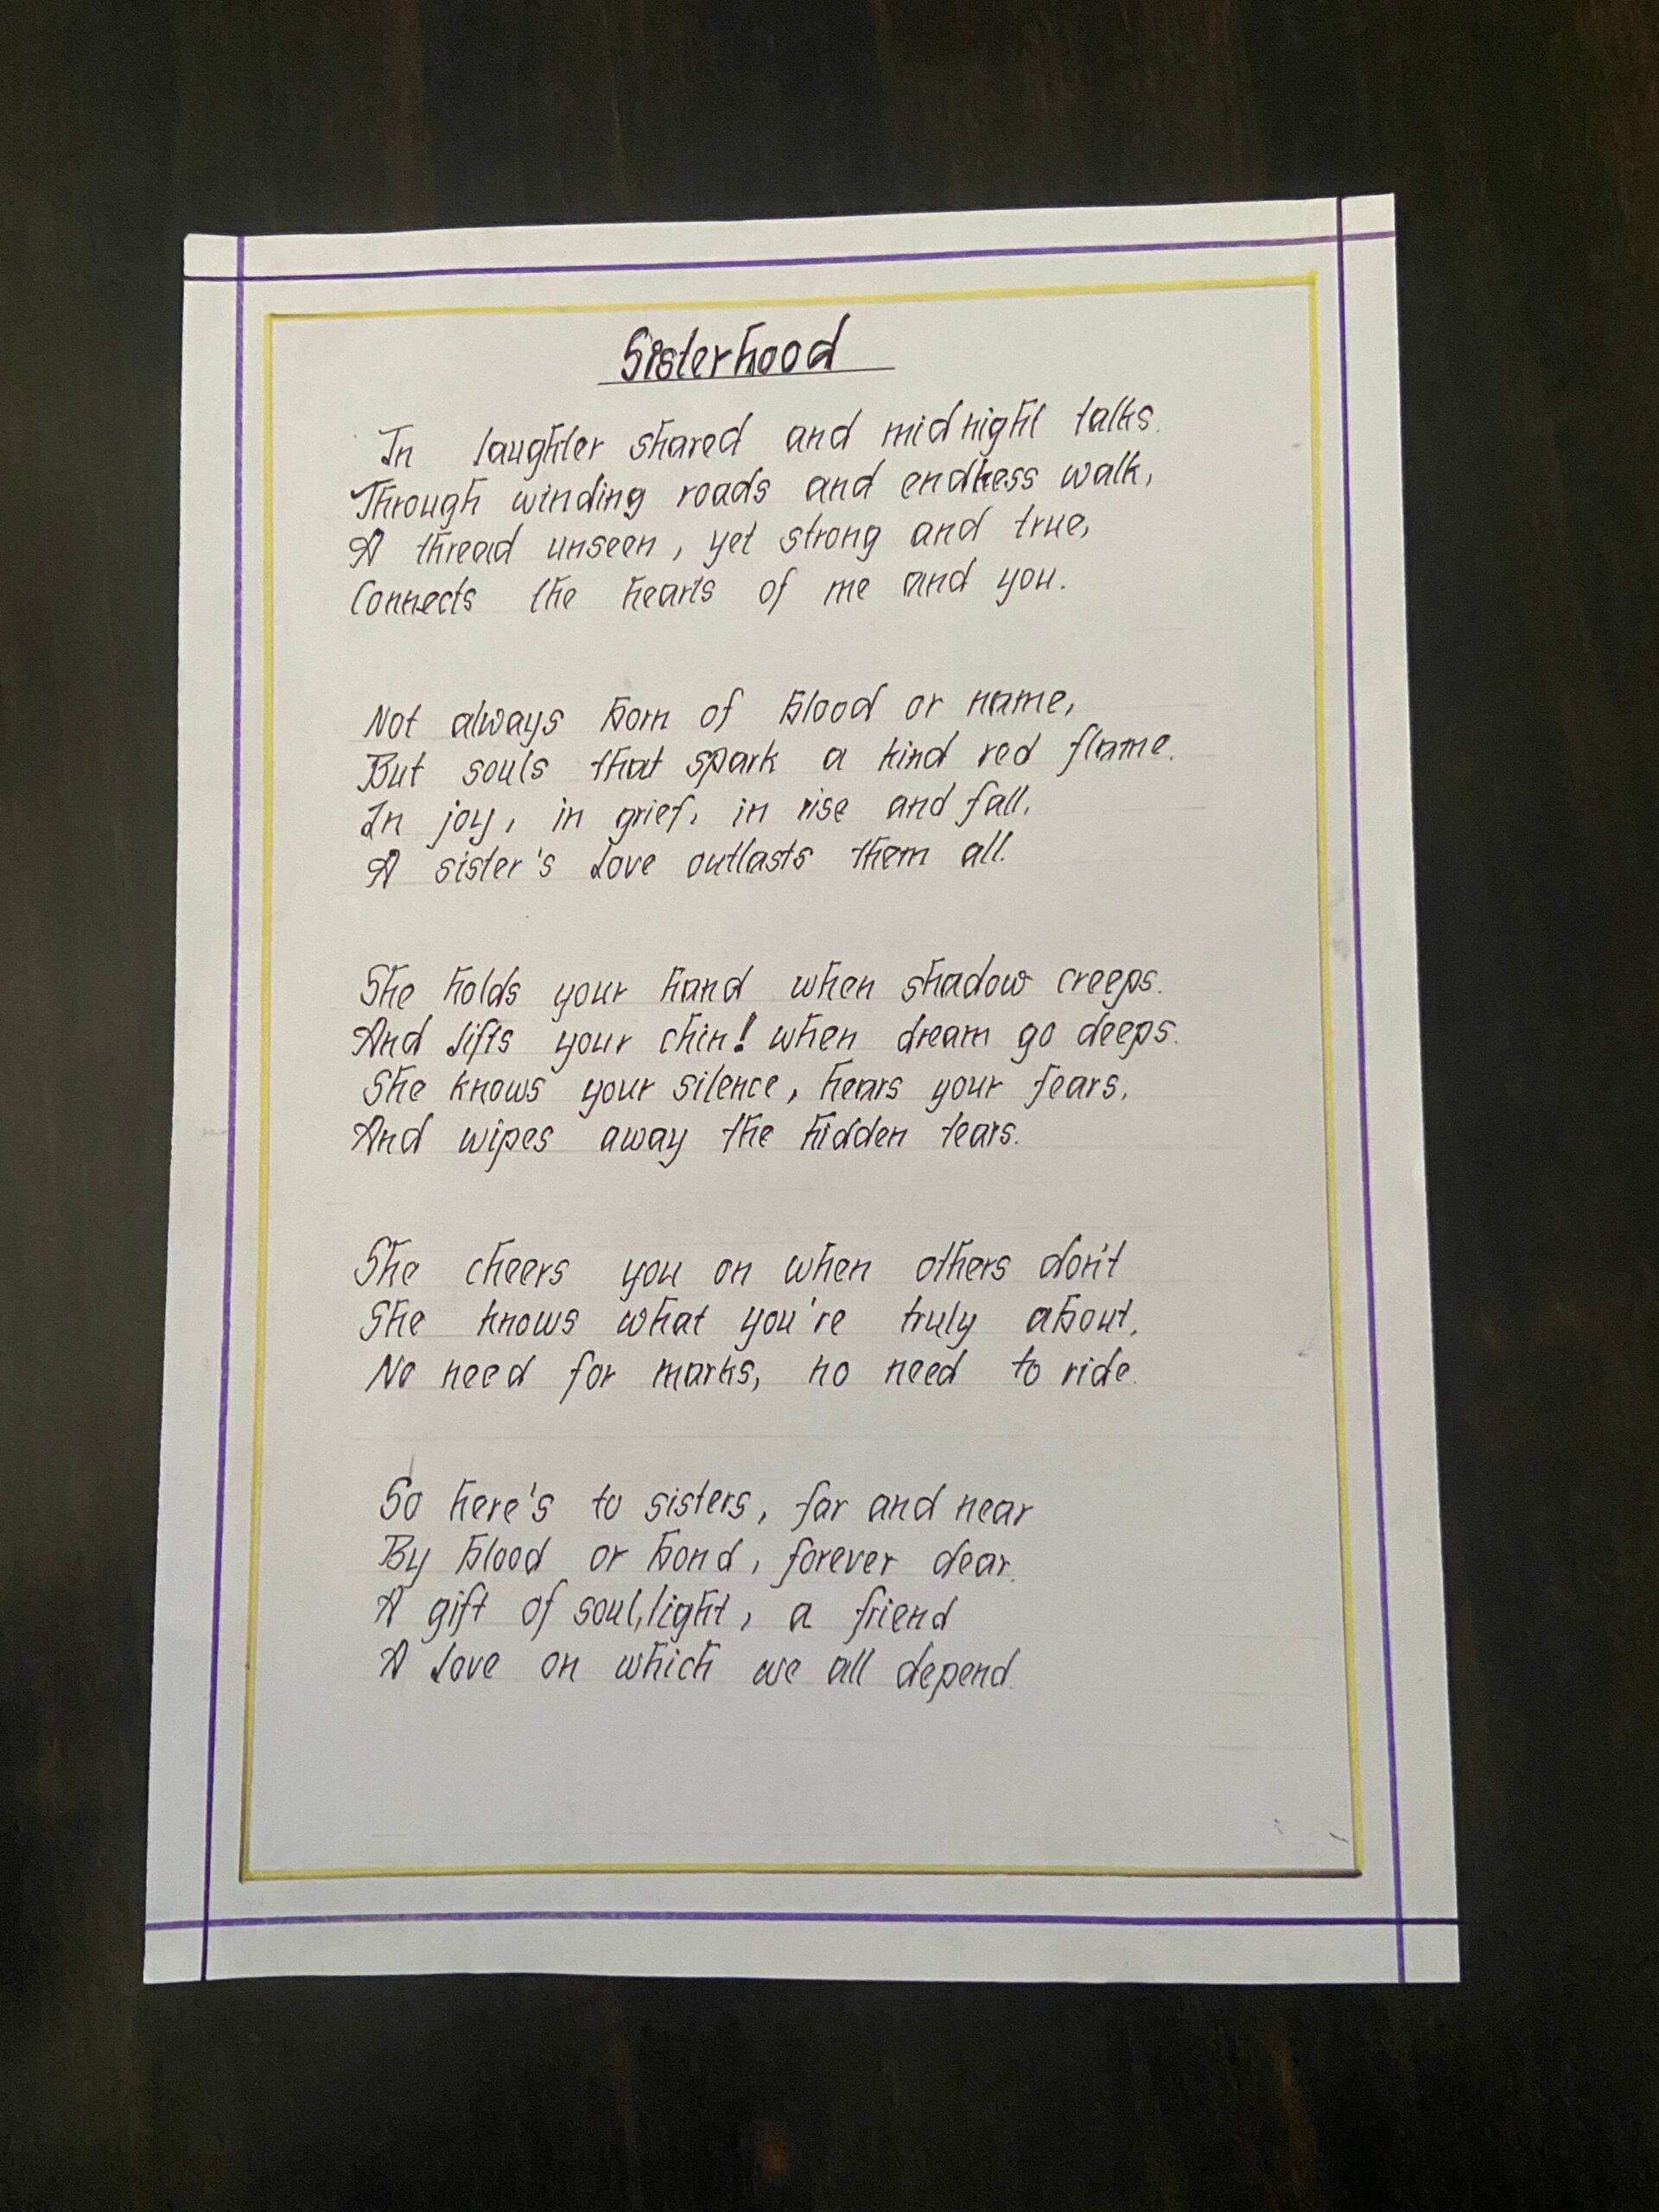 Sisterhood
In laughter shared and midnight talks.
Through winding roads and endless walk,
A thread unseen, yet strong and true,
Connects the hearts of me and you.
Not always born of blood or name,
But souls that spark a kind red flame.
In joy, in grief, in rise and fall,
A sister's love outlasts them all.
She holds your hand when shadow creeps.
And lifts your chin! when dream go deeps.
She knows your silence, hears your fears,
And wipes away the hidden tears.
She cheers you on when others don't
She knows what you're truly about,
No need for marks, no need to ride.
So here's to sisters, far and near
By blood or bond, forever dear.
A gift of soul, light, a friend
A love on which we all depend.